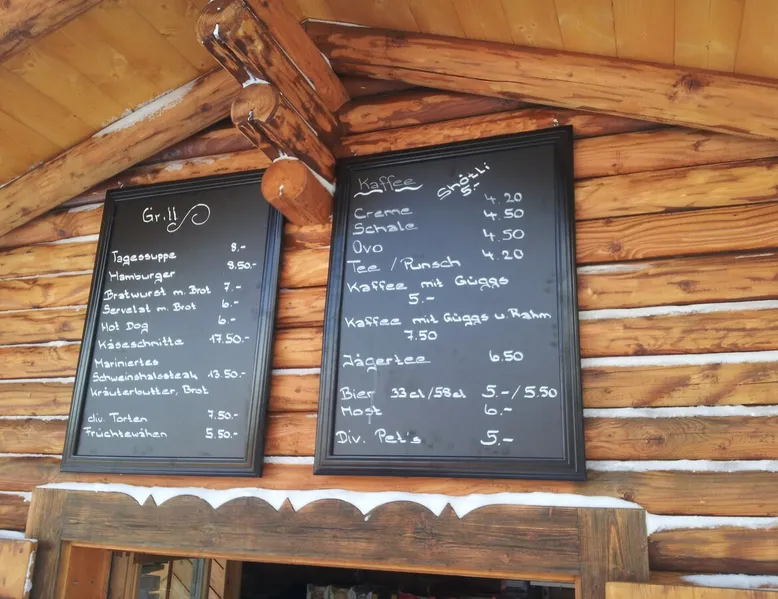 Grill
Tagessuppe 8.-
Hamburger 8.50.-
Bratwurst m. Brot 7.-
Servelat m. Brot 6.-
Hot Dog 6.-
Käseschnitte 17.50.-
Mariniertes
Schweinshalssteak 13.50.-
Kräuterbutter, Brot
div. Torten 7.50.-
Früchtewähen 5.50.-
Kaffee
Shötli
5.-
Creme 4.20
Schale 4.50
Ovo 4.50
Tee / Punsch 4.20
Kaffee mit Güggs
5.-
Kaffee mit Güggs u. Rahm
7.50
Jägertee 6.50
Bier 33cl/58cl 5.-/5.50
Most 6.-
Div. Pet's 5.-